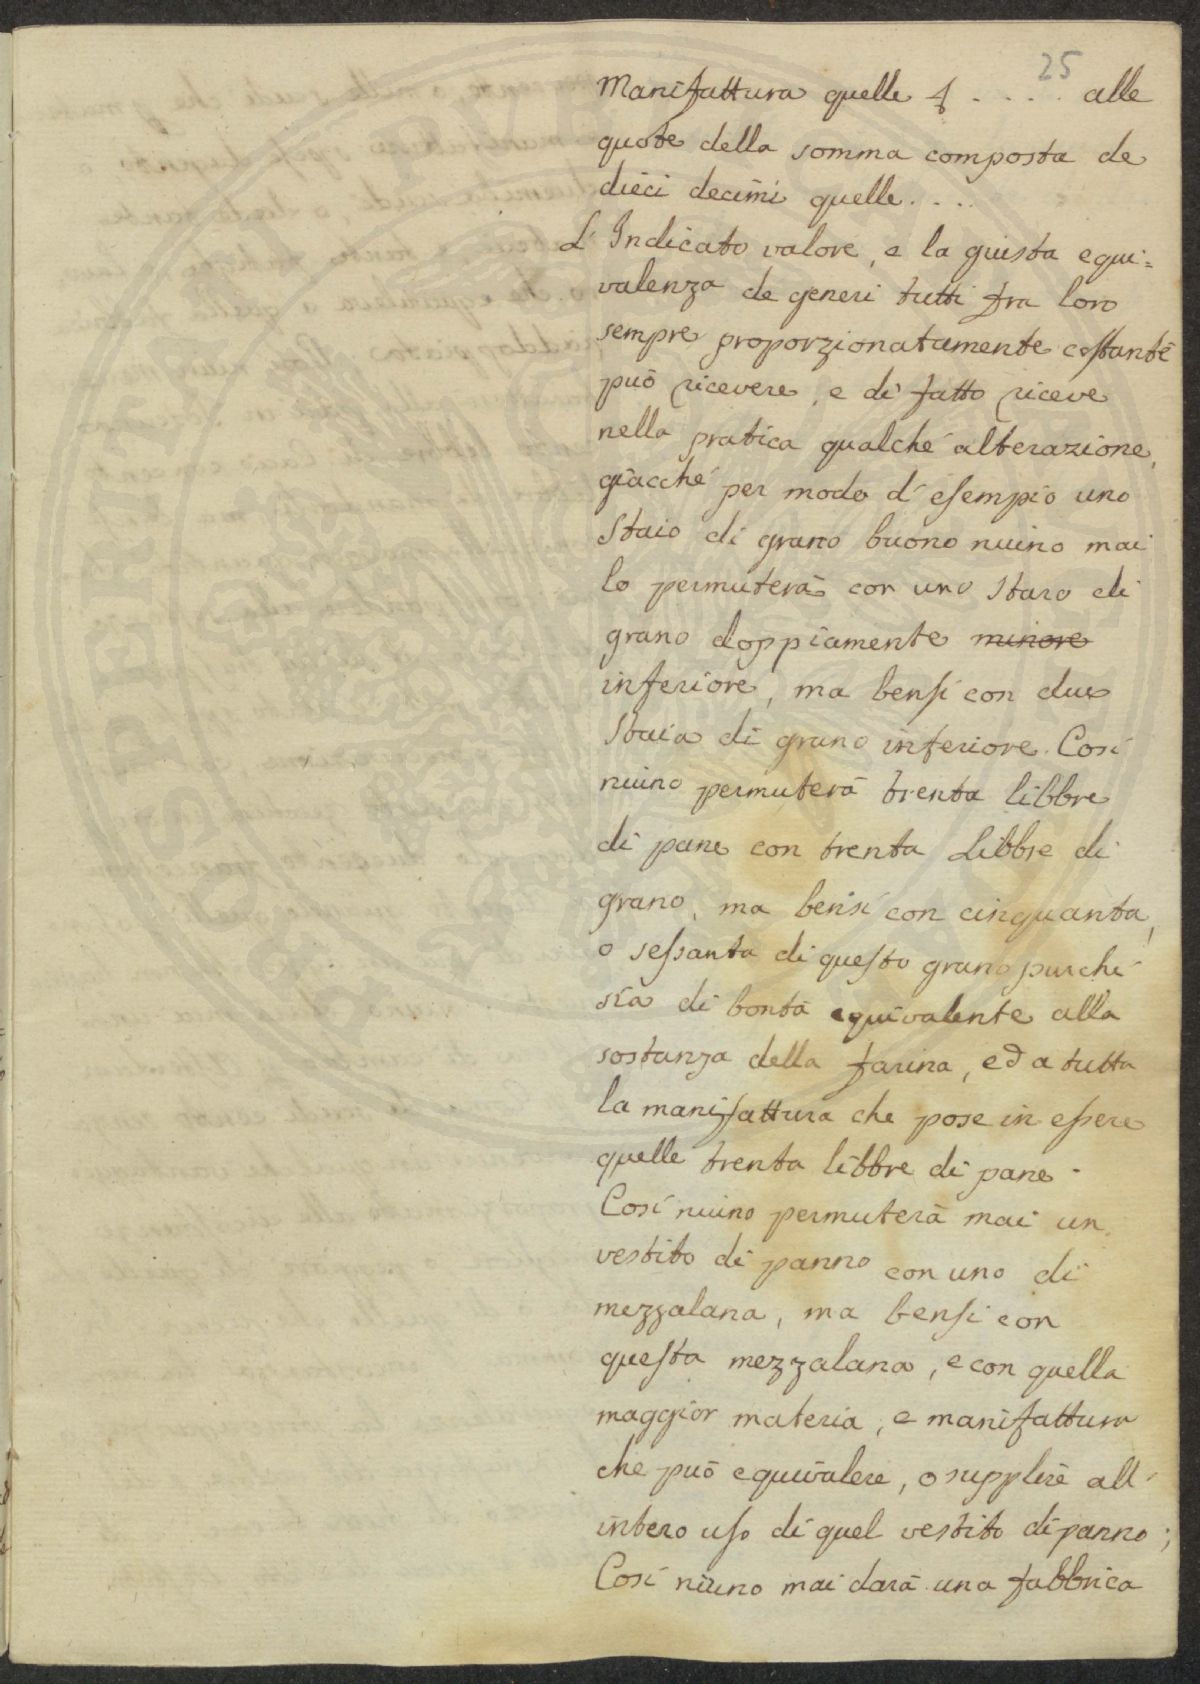 25
Manifattura quelle ƒ . . . . . alle
quote della somma composta de
dieci decimi quelle. . . .
L' Indicato valore, e la giusta equi=
valenza de generi tutti fra loro
sempre proporzionatamente costante
può ricevere, e di fatto riceve
nella pratica qualche alterazione,
giacchè per modo d' esempio uno
Staio di grano buono niuno mai
lo permuterà con uno Staro di
grano doppiamente minore
inferiore, ma bensi con due
Staia di grano inferiore. Così
niuno permuterà trenta libbre
di pane con trenta Libbre di
grano, ma bensi con cinquanta,
o sessanta di questo grano purchè
sia di bontà equivalente alla
sostanza della farina, ed a tutta
la manifattura che pose in essere
quelle trenta libbre di pane.
Così niuno permuterà mai un
vestito di panno con uno di
mezzalana, ma bensi con
questa mezzalana, e con quella
maggior materia, e manifattura
che può equivalere, o supplire all'
intero uso di quel vestito di panno;
Così niuno mai darà una fabbrica